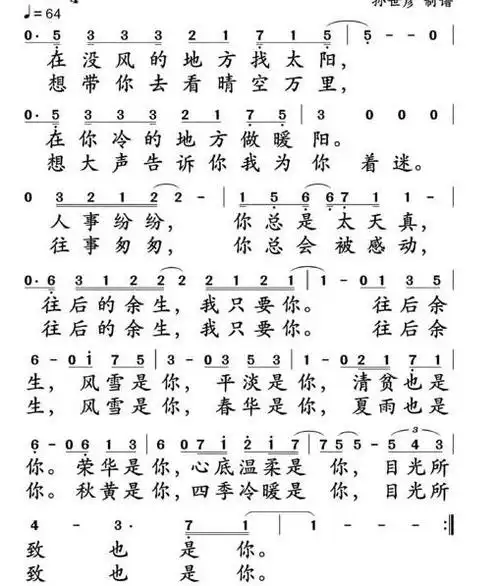 ♩=64
孙世彦 制谱
0· 5 3 3 3 2 1 7 1 5 | 5 - - 0 |
在没风的地方找太阳，
想带你去看晴空万里，
0· 5 3 3 3 2 1 7 5 | 3 0 0 0 |
在你冷的地方做暖阳。
想大声告诉你我为你 着迷。
0 3 2 1 2 2 - | 1 5 6 6 7 1 1 |
人事纷纷， 你总是太天真，
往事匆匆， 你总会被感动，
0· 6 3 1 2 1 2 2 2 1 2 1 | 1 - 0 1 3 5 |
往后的余生，我只要你。 往后余
往后的余生，我只要你。 往后余
6 - 0 1 7 5 | 3 - 0 3 5 3 | 1 - 0 2 1 7 1 |
生，风雪是你，平淡是你，清贫也是
生，风雪是你，春华是你，夏雨也是
6 - 0 6 1 3 | 6 0 7 1 2 1 7 | 7 5 5 - 5 4 3 |
你。荣华是你，心底温柔是 你，目光所
你。秋黄是你，四季冷暖是 你，目光所
4 - 3· 7 1 | 1 - - - :|
致 也 是 你。
致 也 是 你。